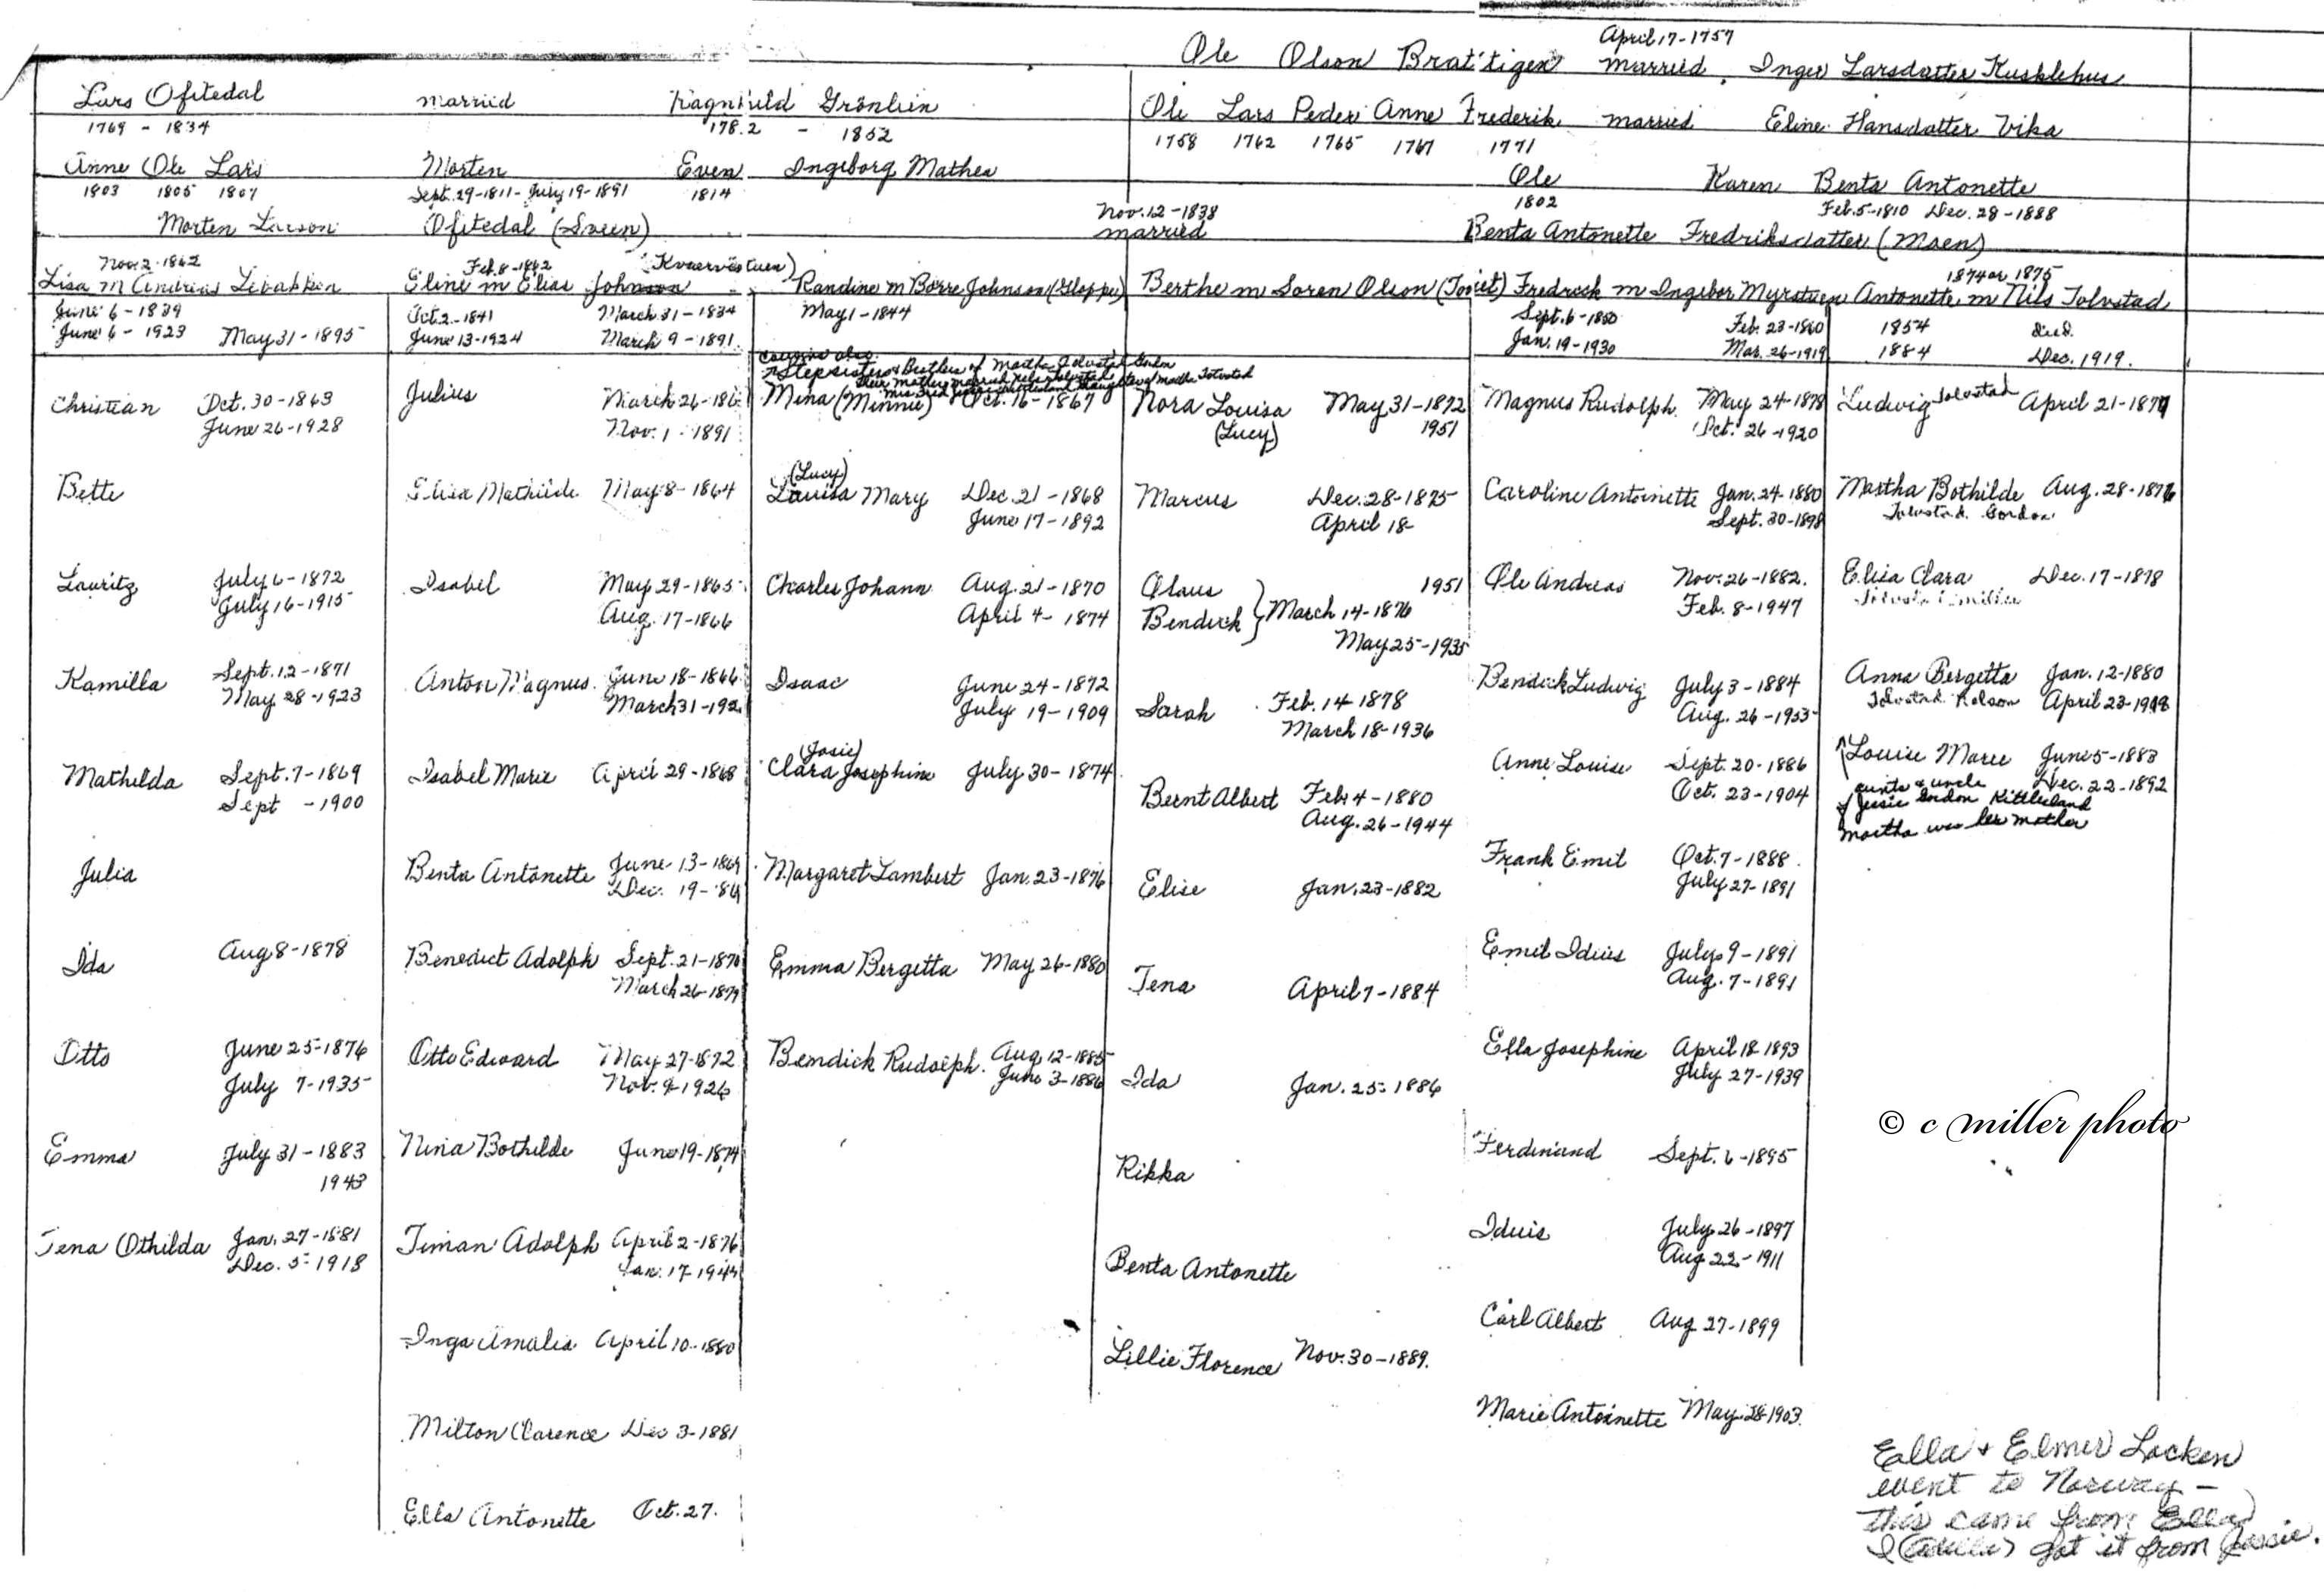 April 17-1757
Ole Olson Brattigen married Inger Larsdatter Kusklehus
Lars Ofstedal married Ragnhild Grönlien
1769 - 1834 1782 - 1852
Ole Lars Peder Anne Frederik married Eline Hansdatter Vika
1758 1762 1765 1767 1771
Anne Ole Lars Morten Even Ingeborg Mathea
1803 1805 1807 Sept. 29-1811- July 19-1891 1814
Ole Karen Benta Antonette
1802 Feb. 5-1810 Dec. 28-1888
Morten Larson Ofstedal (Sveen)
Nov. 12-1838
married
Benta Antonette Fredriksdatter (Moen)
Nov. 2-1862
Lisa m Andrias Libakken
June 6-1839
June 6-1923 May 31-1895
Christian Oct. 30-1863
June 26-1928
Bette
Lauritz July 6-1872
July 16-1915
Kamilla Sept. 12-1871
May 28-1923
Mathilda Sept. 7-1869
Sept -1900
Julia
Ida Aug 8-1878
Otto June 25-1876
July 7-1935
Emma July 31-1883
1943
Tena Othilda Jan. 27-1881
Dec. 5-1918
Feb. 8-1862 (Kvaervistuen)
Eline m Elias Johnson
Oct. 2-1841 March 31-1834
June 13-1924 March 9-1891
Julius March 26-186
Nov. 1-1891
Elisa Mathilde May 8-1864
Isabel May 29-1865
Aug. 17-1866
Anton Magnus June 18-1866
March 31-192
Isabel Marie April 29-1868
Benta Antonette June 13-1869
Dec. 19-'69
Benedict Adolph Sept. 21-1870
March 26-1879
Otto Edward May 27-1872
Nov. 9-1926
Nina Bothilde June 19-1874
Timan Adolph April 2-1876
Jan. 17-1944
Inga Amalia April 10-1880
Milton Clarence Dec 3-1881
Ella Antonette Oct. 27.
Randine m Börre Johnson (Gloppe)
May 1-1844
cousins also
Stepsisters & Brothers of Martha Tolvstad Gordon
their mother married Nels Tolvstad
Mina (Minnie) Oct. 16-1867
(Lucy)
Louisa Mary Dec. 21-1868
June 17-1892
Charles Johann Aug. 21-1870
April 4-1874
Isaac June 24-1872
July 19-1909
(Josie)
Clara Josephine July 30-1874
Margaret Lambert Jan. 23-1876
Emma Bergetta May 26-1880
Bendick Rudolph Aug 12-1885
June 3-1886
Berthe m Soren Olson (Toviet)
Nora Louisa May 31-1872
(Lucy) 1951
Marcus Dec. 28-1875
April 18-
Olaus 1951
Bendick } March 14-1876
May 25-1935
Sarah Feb. 14-1878
March 18-1936
Bernt Albert Feb 4-1880
Aug. 26-1944
Elise Jan. 23-1882
Tena April 7-1884
Ida Jan. 25-1886
Rikka
Benta Antonette
Lillie Florence Nov. 30-1889.
Fredrick m Ingebor Myrstuen
Sept. 6-1850 Feb. 23-1860
Jan. 19-1930 Mar. 26-1919
Magnus Rudolph May 24-1878
Oct. 26-1920
Caroline Antoinette Jan. 24-1880
Sept. 30-1898
Ole Andreas Nov. 26-1882.
Feb. 8-1947
Bendick Ludwig July 3-1884
Aug. 26-1953
Anne Louise Sept. 20-1886
Oct. 23-1904
Frank Emil Oct. 7-1888
July 27-1891
Emil Iduis July 9-1891
Aug. 7-1891
Ella Josephine April 18-1893
July 27-1939
Ferdinand Sept. 6-1895
Iduis July 26-1897
Aug 22-1911
Carl Albert Aug 27-1899
Marie Antoinette May 28-1903
1874 or 1875
Antonette m Nils Tolvstad
1854 died
1884 Dec. 1919.
Ludwig Tolvstad April 21-187
Martha Bothilde Aug. 28-1876
Tolvstad Gordon
Elisa Clara Dec. 17-1878
Anna Bergetta Jan. 12-1880
Tolvstad Nelson April 23-19
Louise Marie June 5-1883
Dec. 22-1892
aunts & uncle
of Jessie Gordon Kittleland
Martha was her mother
© c miller photo
Ella + Elmer Locken
went to Norway -
this came from Ella
I got it from Jessie.